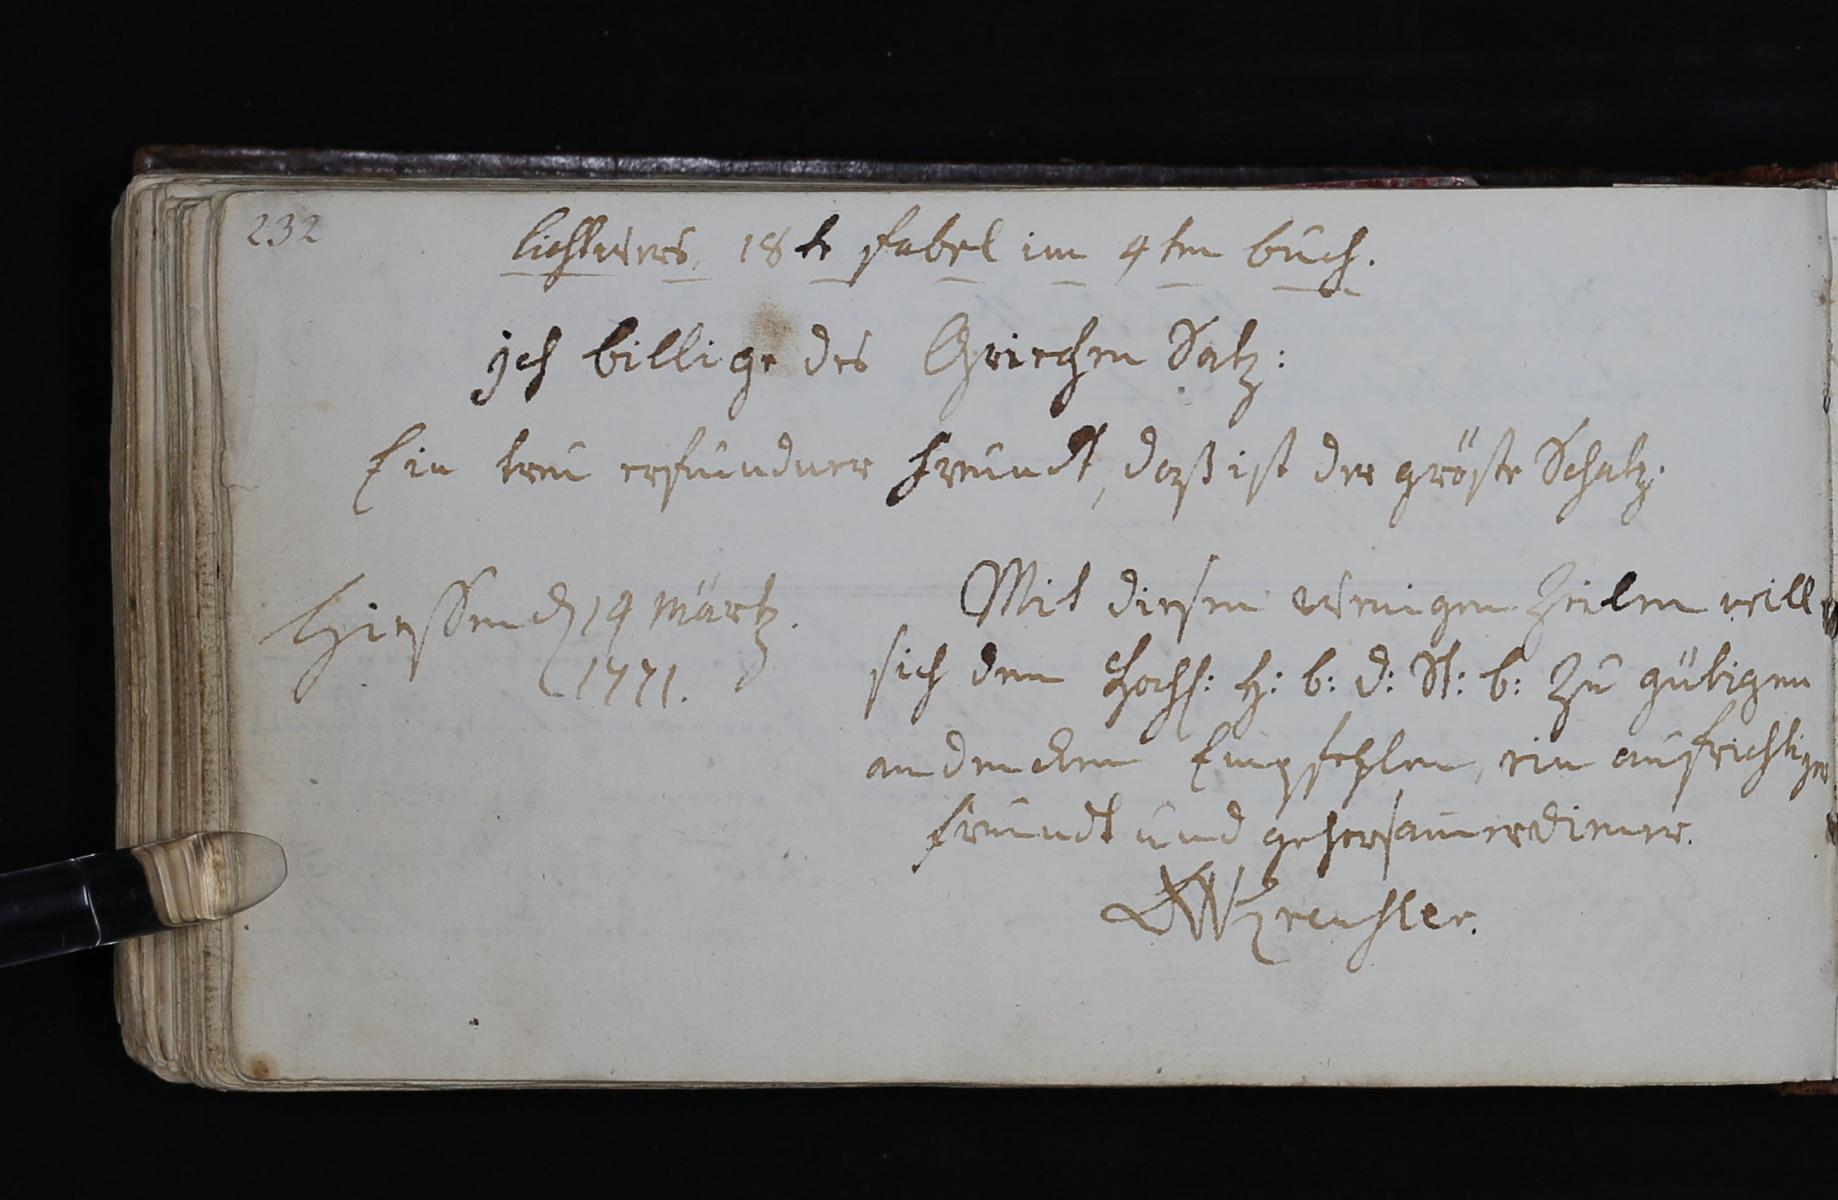 232
lichtwers, 18te fabel im 4ten buch.
jch billige des Griechen Satz:
Ein treu erfundner freundt, daß ist der gröste Schatz.
Giessen d 19 Märtz.
1771.
Mit diesen wenigen Zeilen will
sich dem Hochl: H: b: d: St: b: zu gütigen
andencken Empfehlen, ein aufrichtiger
freundt und gehorsamer diener.